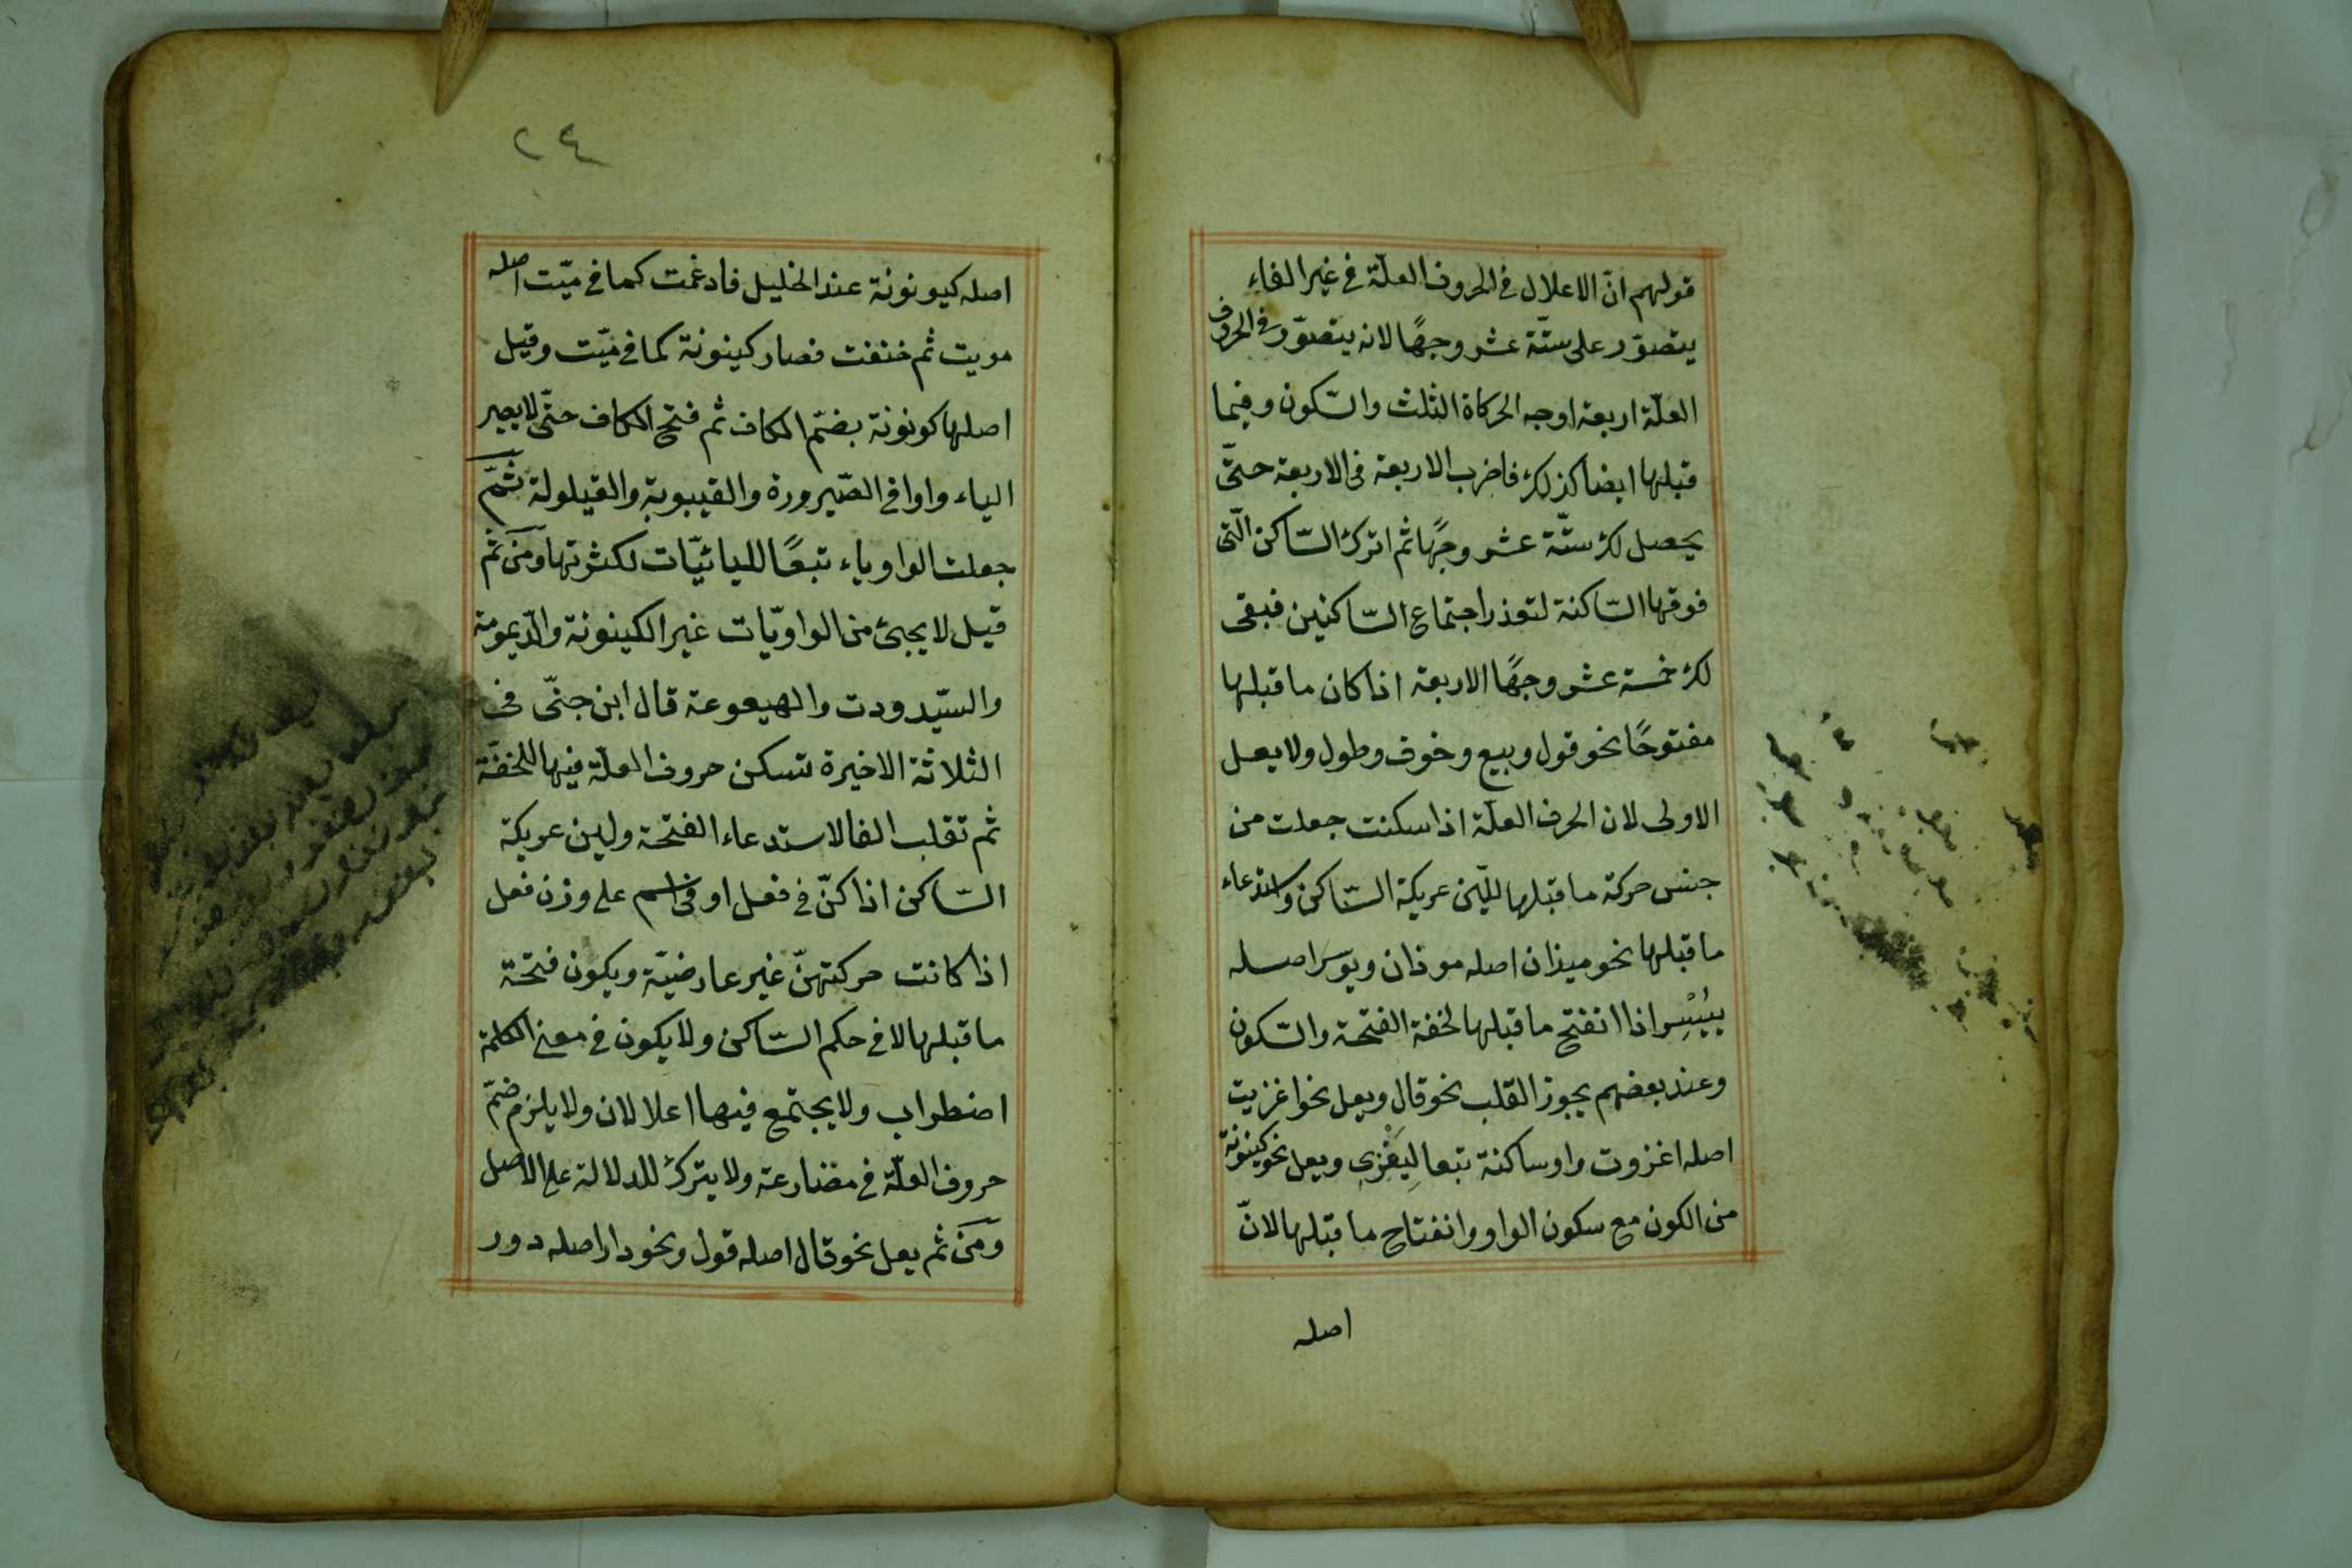 قولهم انّ الاعلال في الحروف العلّة في غير الفاء
يتصوّر على ستّة عشر وجهًا لانه يتصوّر في الحروف
العلّة اربعة اوجه الحركاة الثلث والسّكون وفيما
قبلها ايضا كذلك فاضرب الاربعة في الاربعة حتّى
يحصل لك ستّة عشر وجهًا ثم اترك السّاكن الّتي
فوقها السّاكنة لتعذر اجتماع السّاكنين فبقى
لك خمسة عشر وجهًا الاربعة اذا كان ما قبلها
مفتوحًا نحو قول وبيع وخوف وطول ولا يعل
الاولى لان الحرف العلّة اذا سكنت جعلت من
جنس حركة ما قبلها لليّن عريكة السّاكن واستدعاء
ما قبلها نحو ميزان اصله موزان ويوسر اصله
ييُسِر اذا انفتح ما قبلها لخفة الفتحة والسّكون
وعند بعضهم يجوز القلب نحو قال ويعل نحو اغزيت
اصله اغزوت واو ساكنة تبعا ليَغْزِي ويعل نحو كينونة
من الكون مع سكون الواو وانفتاح ما قبلها لانّ
اصله
٢٤
اصله كيونونة عند الخليل فادغمت كما في ميّت اصله
مويت ثم خففت فصار كينونة كما في ميّت وقيل
اصلها كونونة بضمّ الكاف ثم فتح الكاف حتّى لا يصير
الياء واوا في الصّيرورة والغيبوبة والقيلولة ثمّ
جعلت الواو ياء تبعًا لليائيّات لكثرتها ومن ثم
قيل لا يجئ من الواويّات غير الكينونة والدّيمومة
والسّيدودت والهيعوعة قال ابن جنّى في
الثلاثة الاخيرة تسكن حروف العلّة فيها للخفّة
ثم تقلب الفا لاستدعاء الفتحة ولين عريكة
السّاكن اذا كنّ في فعل او في اسم على وزن فعل
اذا كانت حركتهنّ غير عارضيّة ويكون فتحة
ما قبلها لا في حكم السّاكن ولا يكون في معنى الكلمة
اضطراب ولا يجتمع فيها اعلالان ولا يلزم ضمّ
حروف العلّة في مضارعة ولا يترك للدلالة على الاصل
ومن ثم يعل نحو قال اصله قول ونحو دار اصله دور